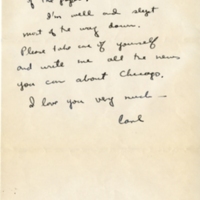 of the paper.
I'm well and slept
most of the way down.
Please take care of yourself
and write me all the news
you can about Chicago.
I love you very much —
Carl